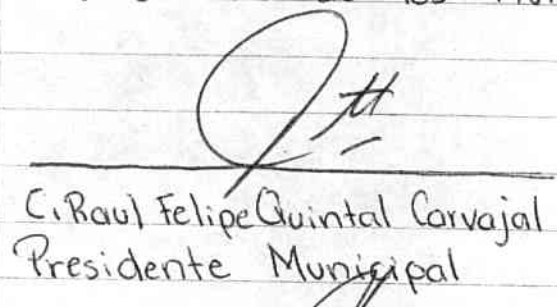 C. Raul Felipe Quintal Carvajal
Presidente Municipal